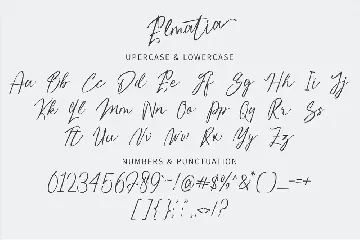 Elmatia
UPERCASE & LOWERCASE
Aa Bb Cc Dd Ee Ff Gg Hh Ii Jj
Kk Ll Mm Nn Oo Pp Qq Rr Ss
Tt Uu Vv Ww Xx Yy Zz
NUMBERS & PUNCTUATION
0123456789~!@#$%^&*()_-=+
[]{};:'",.<>/?